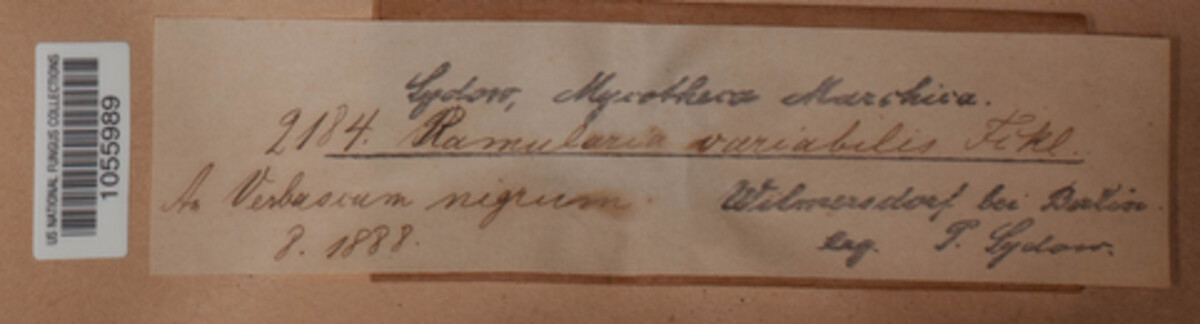 US NATIONAL FUNGUS COLLECTIONS
1055989
Sydow, Mycotheca Marchica.
2184. Ramularia variabilis Fckl.
An Verbascum nigrum.
8. 1888.
Wilmersdorf bei Berlin.
leg. P. Sydow.